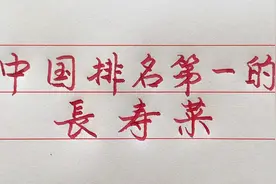 中国排名第一的
長寿菜